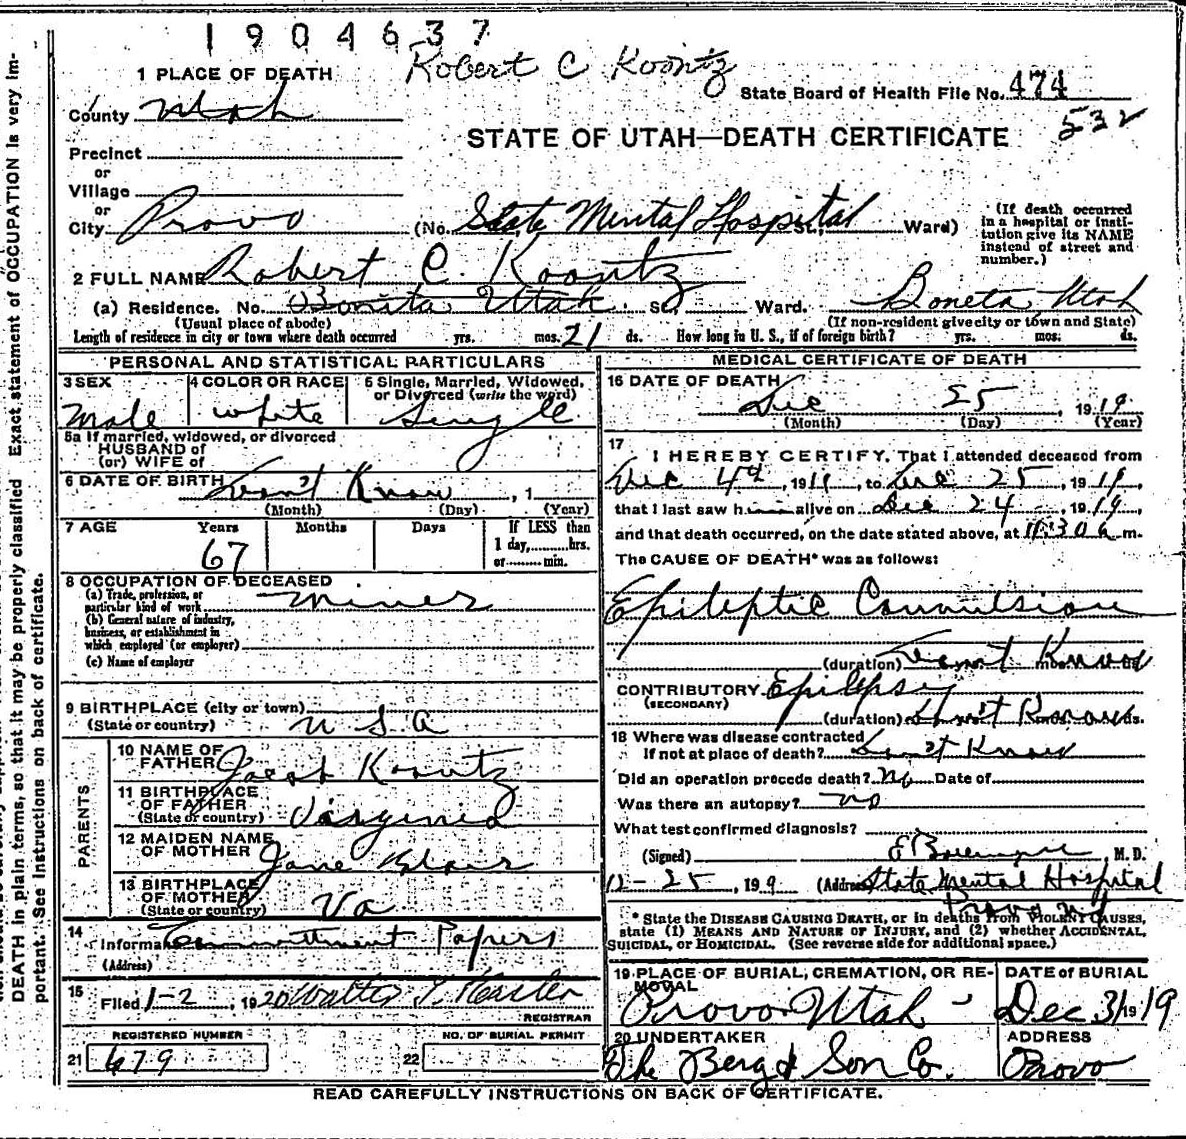 1904637
Robert C Koontz
1 PLACE OF DEATH
State Board of Health File No. 474
County Utah
532
STATE OF UTAH—DEATH CERTIFICATE
Precinct
or
Village
or
City Provo (No. State Mental Hospital St., Ward)
(If death occurred in a hospital or institution give its NAME instead of street and number.)
2 FULL NAME Robert C. Koontz
(a) Residence. No. Bonita Utah St. Ward. Boneta Utah
(Usual place of abode) (If non-resident give city or town and State)
Length of residence in city or town where death occurred yrs. mos. 21 ds. How long in U. S., if of foreign birth? yrs. mos. ds.
PERSONAL AND STATISTICAL PARTICULARS
3 SEX Male
4 COLOR OR RACE white
5 Single, Married, Widowed, or Divorced (write the word) Single
5a If married, widowed, or divorced
HUSBAND of
(or) WIFE of
6 DATE OF BIRTH Don't Know , 1
(Month) (Day) (Year)
7 AGE Years Months Days If LESS than
67 1 day,........hrs.
or........min.
8 OCCUPATION OF DECEASED
(a) Trade, profession, or
particular kind of work Miner
(b) General nature of industry,
business, or establishment in
which employed (or employer)
(c) Name of employer
9 BIRTHPLACE (city or town)
(State or country) U S A
PARENTS
10 NAME OF FATHER Jacob Koontz
11 BIRTHPLACE OF FATHER
(State or country) Virginia
12 MAIDEN NAME OF MOTHER Jane Blair
13 BIRTHPLACE OF MOTHER
(State or country) Va
14 Informant Committment Papers
(Address)
15 Filed 1-2, 1920 Walter T. Hasler
REGISTRAR
REGISTERED NUMBER
NO. OF BURIAL PERMIT
21 679
22
MEDICAL CERTIFICATE OF DEATH
16 DATE OF DEATH Dec 25, 1919
(Month) (Day) (Year)
17 I HEREBY CERTIFY, That I attended deceased from
Dec 4th, 1919, to Dec 25, 1919,
that I last saw him alive on Dec 24, 1919,
and that death occurred, on the date stated above, at 11:30 a m.
The CAUSE OF DEATH* was as follows:
Epileptic Convulsion
(duration) Don't Know
CONTRIBUTORY Epilepsy
(SECONDARY)
(duration) Don't Know ds.
18 Where was disease contracted
If not at place of death? Don't Know
Did an operation precede death? No Date of
Was there an autopsy? no
What test confirmed diagnosis?
(Signed) M. D.
12-25, 1919 (Address) State Mental Hospital
Provo
* State the DISEASE CAUSING DEATH, or in deaths from VIOLENT CAUSES,
state (1) MEANS AND NATURE OF INJURY, and (2) whether ACCIDENTAL,
SUICIDAL, or HOMICIDAL. (See reverse side for additional space.)
19 PLACE OF BURIAL, CREMATION, OR REMOVAL
Provo Utah
DATE of BURIAL
Dec 31 1919
20 UNDERTAKER
The Berg & Son Co.
ADDRESS
Provo
READ CAREFULLY INSTRUCTIONS ON BACK OF CERTIFICATE.
DEATH in plain terms, so that it may be properly classified Exact statement of OCCUPATION is very im-
portant. See Instructions on back of certificate.